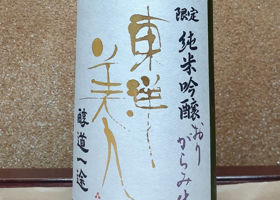 限定
純米吟醸
おりがらみ
東洋美人
醇道一途